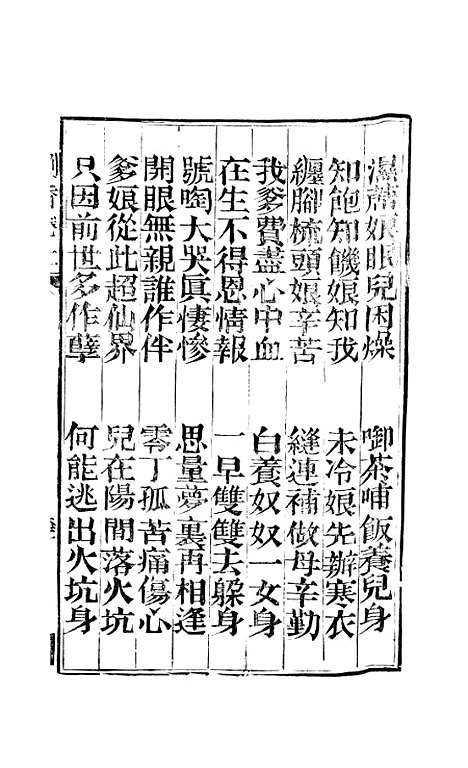 濕蓆娘眠兒困燥　啣茶哺飯養兒身
知飽知饑娘知我　未冷娘先辦寒衣
纏腳梳頭娘辛苦　縫連補做母辛勤
我爹費盡心中血　白養奴奴一女身
在生不得恩情報　一早雙雙去躲身
號啕大哭眞悽慘　思量夢裏再相逢
開眼無親誰作伴　零丁孤苦痛傷心
爹娘從此超仙界　兒在陽間落火坑
只因前世多作孽　何能逃出火坑身